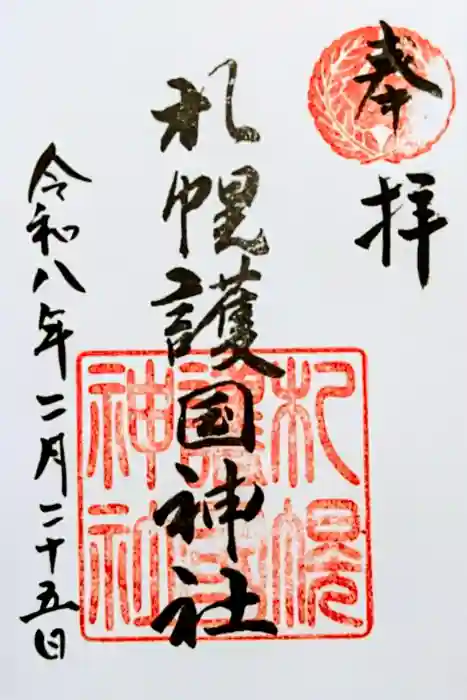 奉拝
札幌護國神社
令和八年二月二十五日
札幌
護國
神社